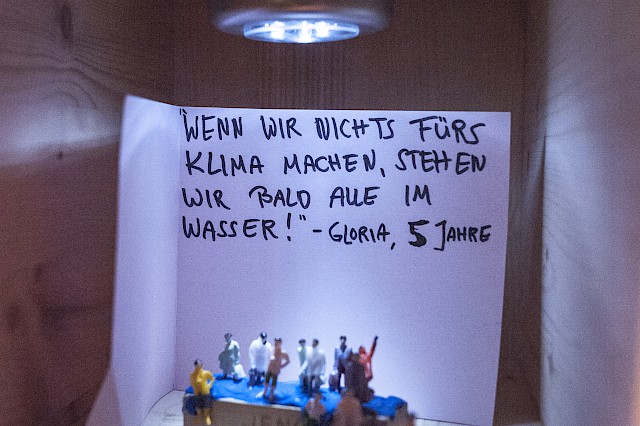 "WENN WIR NICHTS FÜRS
KLIMA MACHEN, STEHEN
WIR BALD ALLE IM
WASSER!" - GLORIA, 5 JAHRE